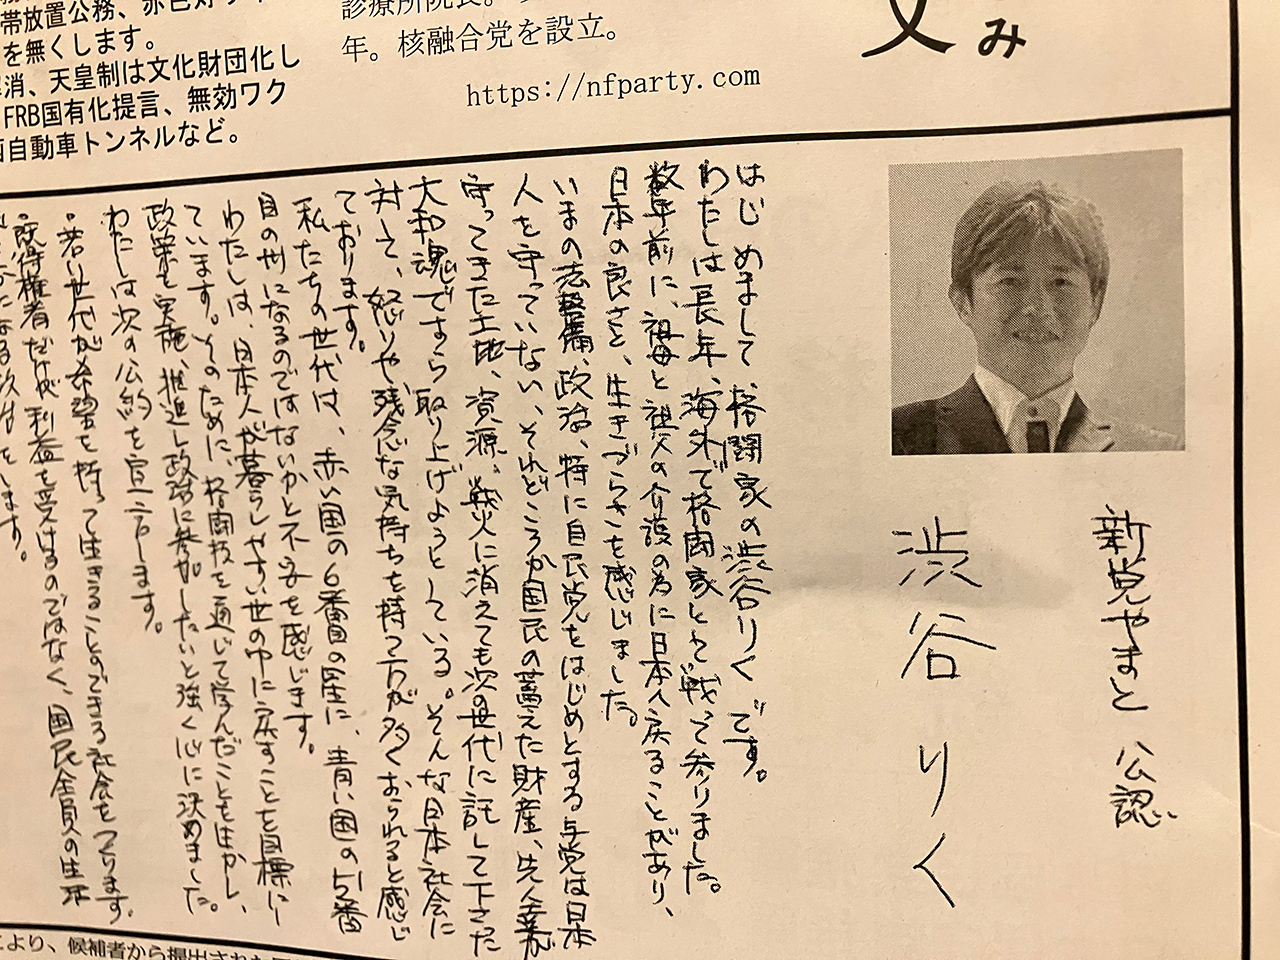 帯放置公務、
を無くします。
消、天皇制は文化財団化し
FRB国有化提言、無効ワク
自動車トンネルなど。
診療所院長。
年。核融合党を設立。
https://nfparty.com
み
新党やまと 公認
渋谷りく
はじめまして格闘家の渋谷りくです。
わたしは長年、海外で格闘家として戦って参りました。
数年前に、祖母と祖父の介護の為に日本へ戻ることがあり、
日本の良さと、生きづらさを感じました。
いまの法整備、政治、特に自民党をはじめとする与党は日本
人を守っていない、それどころか国民の蓄えた財産、先人達が
守ってきた土地、資源、戦火に消えても次の世代に託して下さった
大和魂ですら取り上げようとしている。そんな日本社会に
対して、怒りや残念な気持ちを持つ方が多くおられると感じ
ております。
私たちの世代は、赤い国の6番目の星に、青い国の51番
目の州になるのではないかと不安を感じます。
わたしは、日本人が暮らしやすい世の中に戻すことを目標にし
ています。そのために、格闘技を通じて学んだことを生かし、
政策を実施、推進し政治に参加したいと強く心に決めました。
わたしは次の公約を宣言します。
・若い世代が希望を持って生きることのできる社会をつくります。
・既得権者だけが利益を受けるのではなく、国民全員の生活
します。
により、候補者から提出された